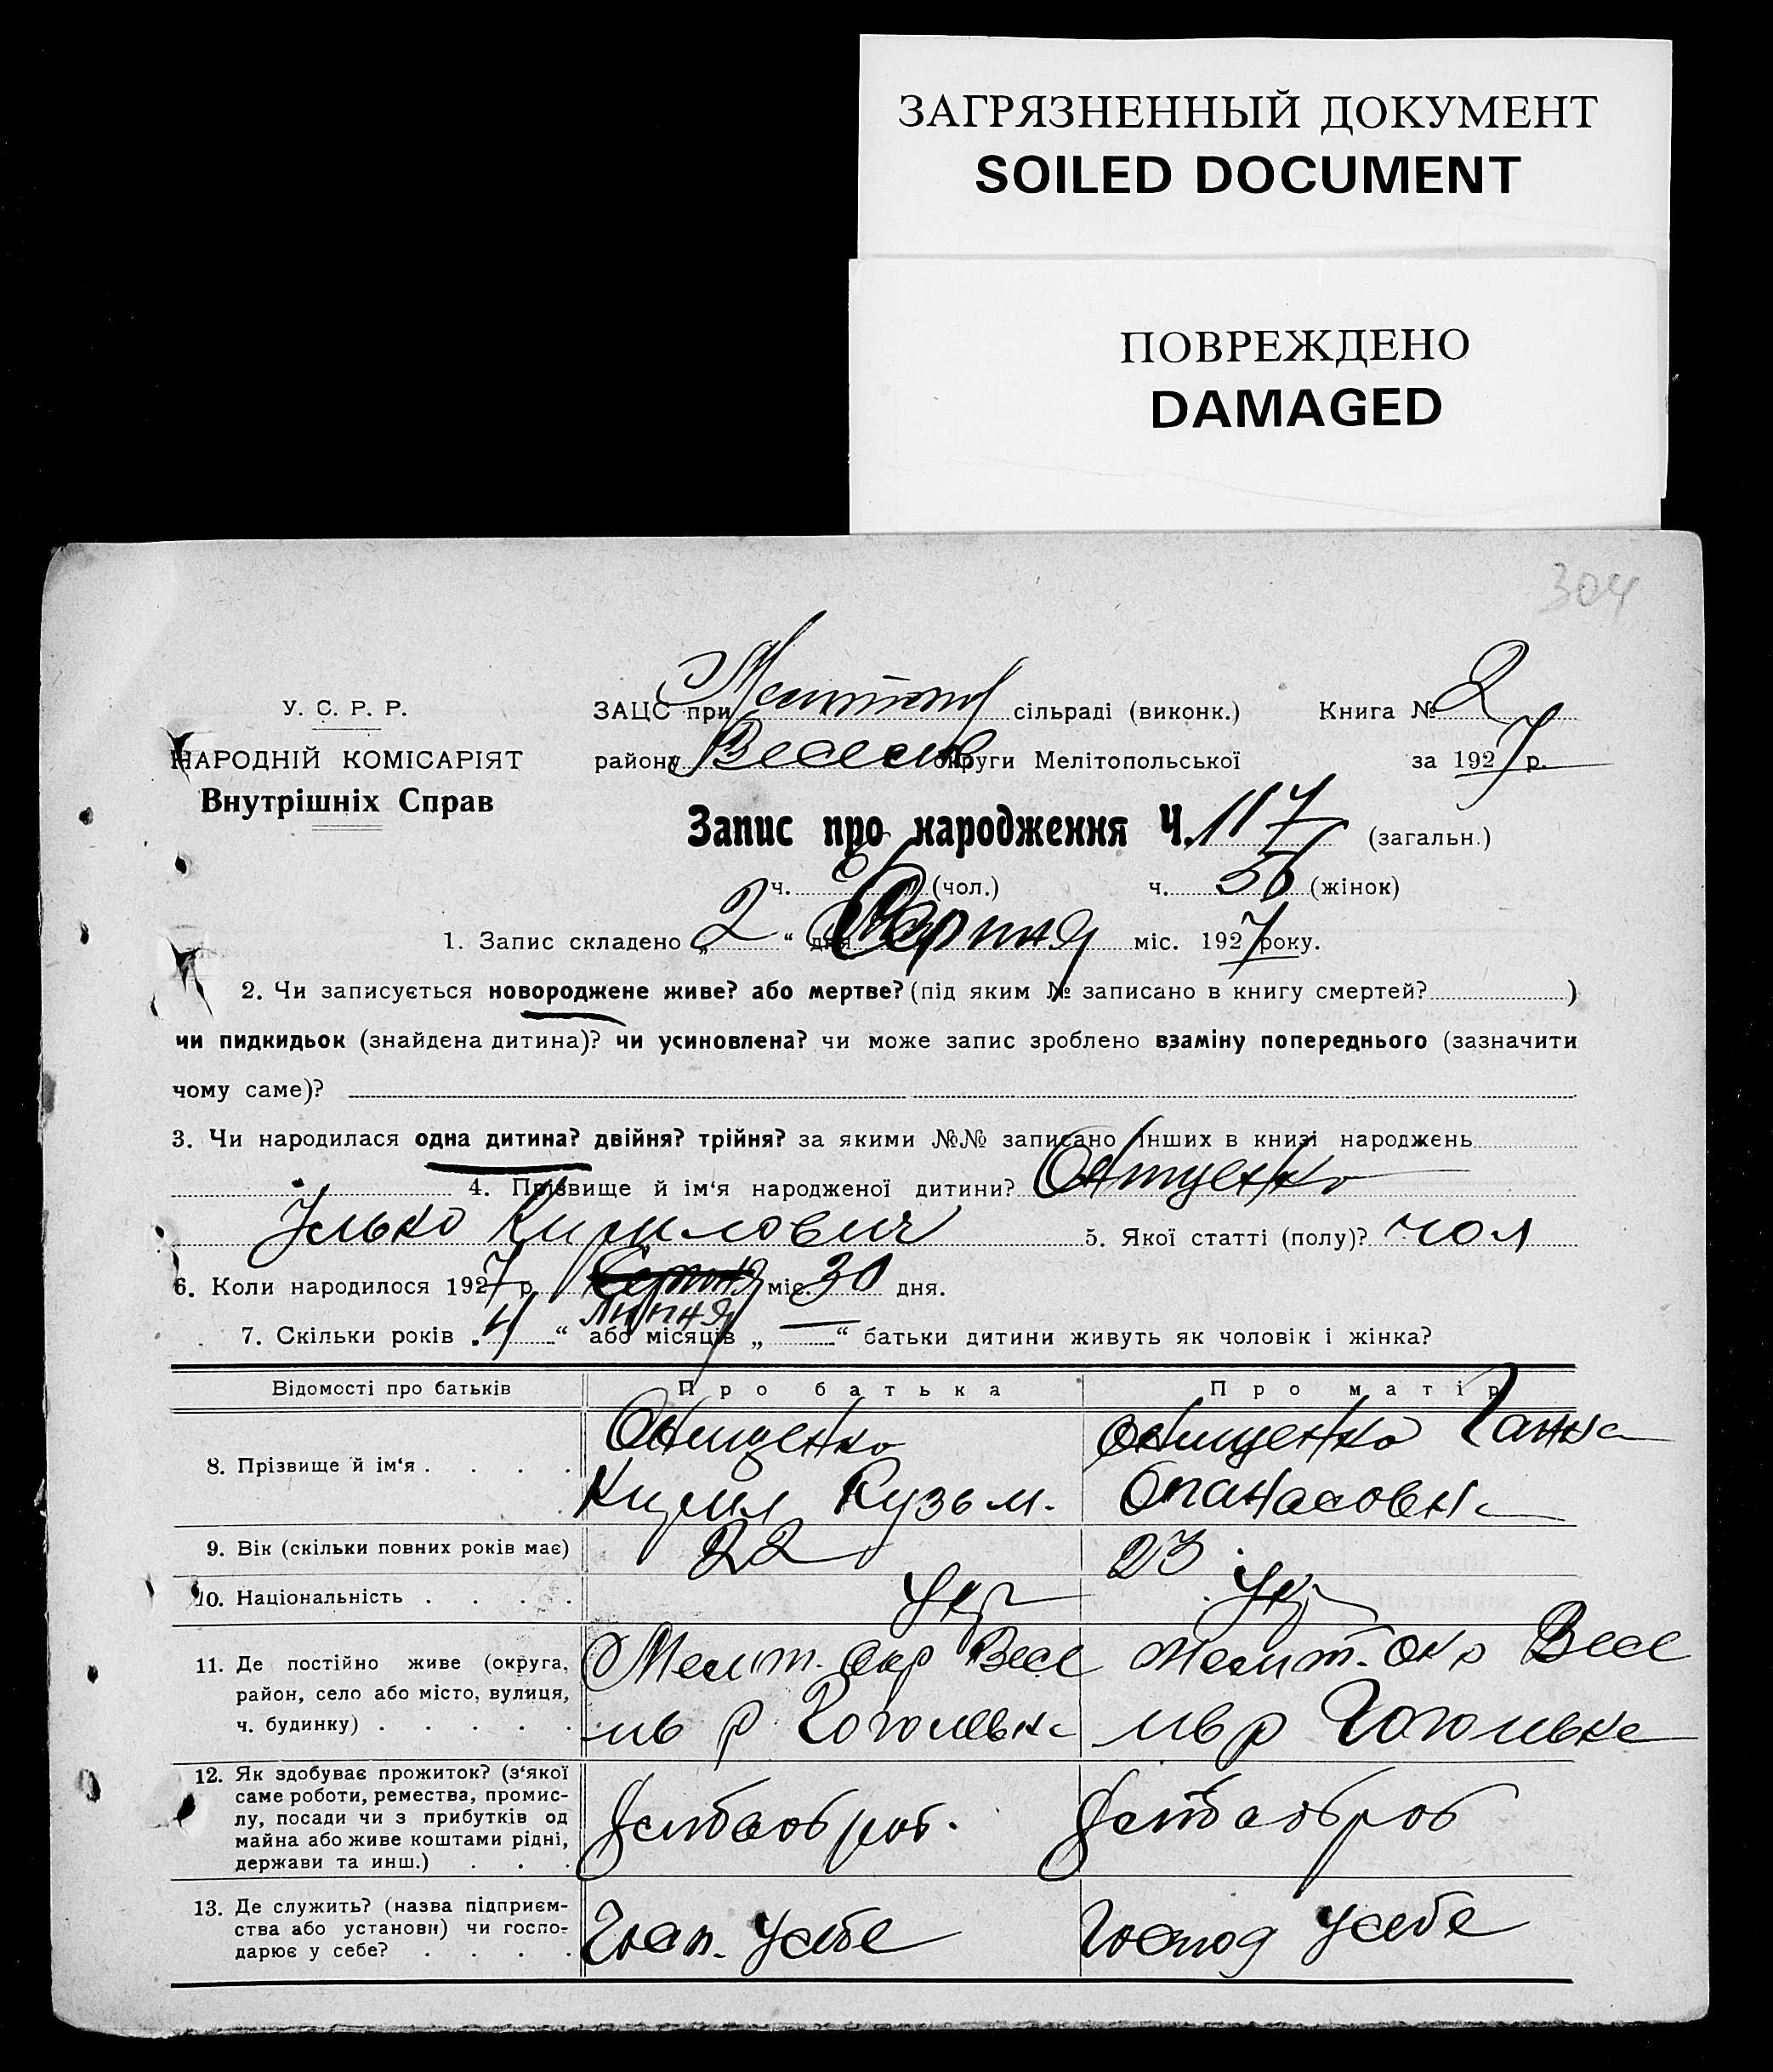 ЗАГРЯЗНЕННЫЙ ДОКУМЕНТ
SOILED DOCUMENT
ПОВРЕЖДЕНО
DAMAGED
304
У. С. Р. Р.
ЗАЦС при сільраді (виконк.) Книга № 2
НАРОДНІЙ КОМІСАРІЯТ
району Веселов округи Мелітопольської за 1927 р.
Внутрішніх Справ
Запис про народження Ч. 117 (загальн.)
ч. (чол.) ч. 56 (жінок)
1. Запис складено „ 2 “ дня Серпня міс. 1927 року.
2. Чи записується новороджене живе? або мертве? (під яким № записано в книгу смертей? )
чи пидкидьок (знайдена дитина)? чи усиновлена? чи може запис зроблено взаміну попереднього (зазначити
чому саме)?
3. Чи народилася одна дитина? двійня? трійня? за якими №№ записано інших в книзі народжень
4. Прізвище й ім'я народженої дитини? Онищенко
Ілько Кирилович 5. Якої статті (полу)? чол
6. Коли народилося 1927 р. Серпня міс. 30 дня.
Липня
7. Скільки років „ 4 “ або місяців „ — “ батьки дитини живуть як чоловік і жінка?
Відомості про батьків Про батька Про матір
8. Прізвище й ім'я . . . . Онищенко Онищенко Ганна
Кирил Кузьм. Опанасовна
9. Вік (скільки повних років має) 22 23
10. Національність . . . . Укр Укр
11. Де постійно живе (округа, Меліт. Окр Весе Меліт. Окр Весе
район, село або місто, вулиця,
ч. будинку) . . . . . ль р Гогольвка ль р Гогольвка
12. Як здобуває прожиток? (з'якої
саме роботи, ремества, промис-
лу, посади чи з прибутків од
майна або живе коштами рідні, Хлібооброб. Хлібооброб
держави та инш.) . . .
13. Де служить? (назва підприєм-
ства або установи) чи госпо- Госп. У себе Господ У себе
дарює у себе? . . . .